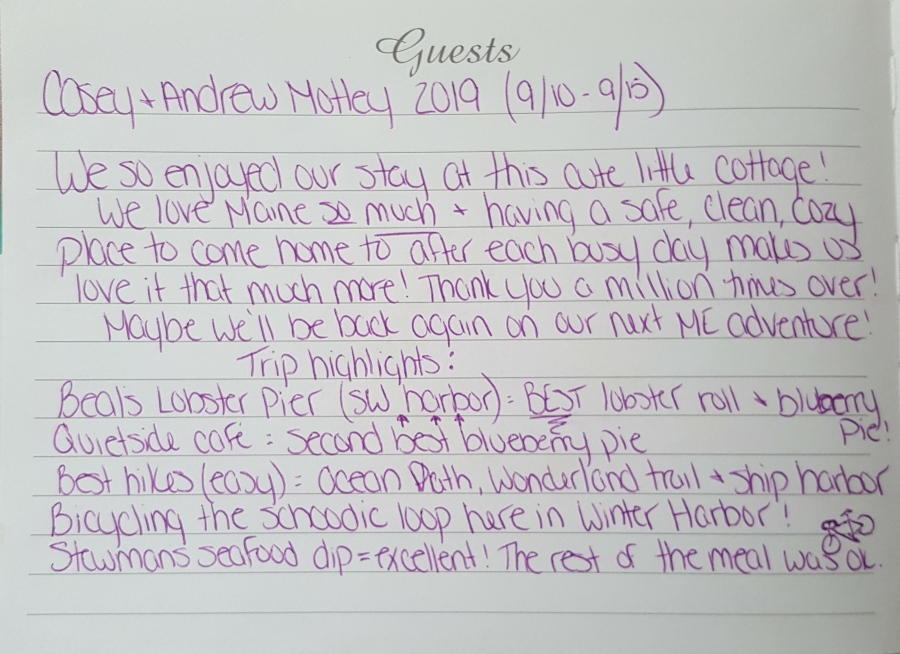 Guests
Casey + Andrew Motley 2019 (9/10 - 9/15)
We so enjoyed our stay at this cute little cottage!
We love Maine so much + having a safe, clean, cozy
place to come home to after each busy day makes us
love it that much more! Thank you a million times over!
Maybe we'll be back again on our next ME adventure!
Trip highlights:
Beal's Lobster Pier (SW harbor) = BEST lobster roll + blueberry
pie!
Quietside café = second best blueberry pie
Best hikes (easy) = Ocean Path, Wonderland trail + ship harbor
Bicycling the schoodic loop here in Winter Harbor!
Stewmans seafood dip = excellent! The rest of the meal was ok.